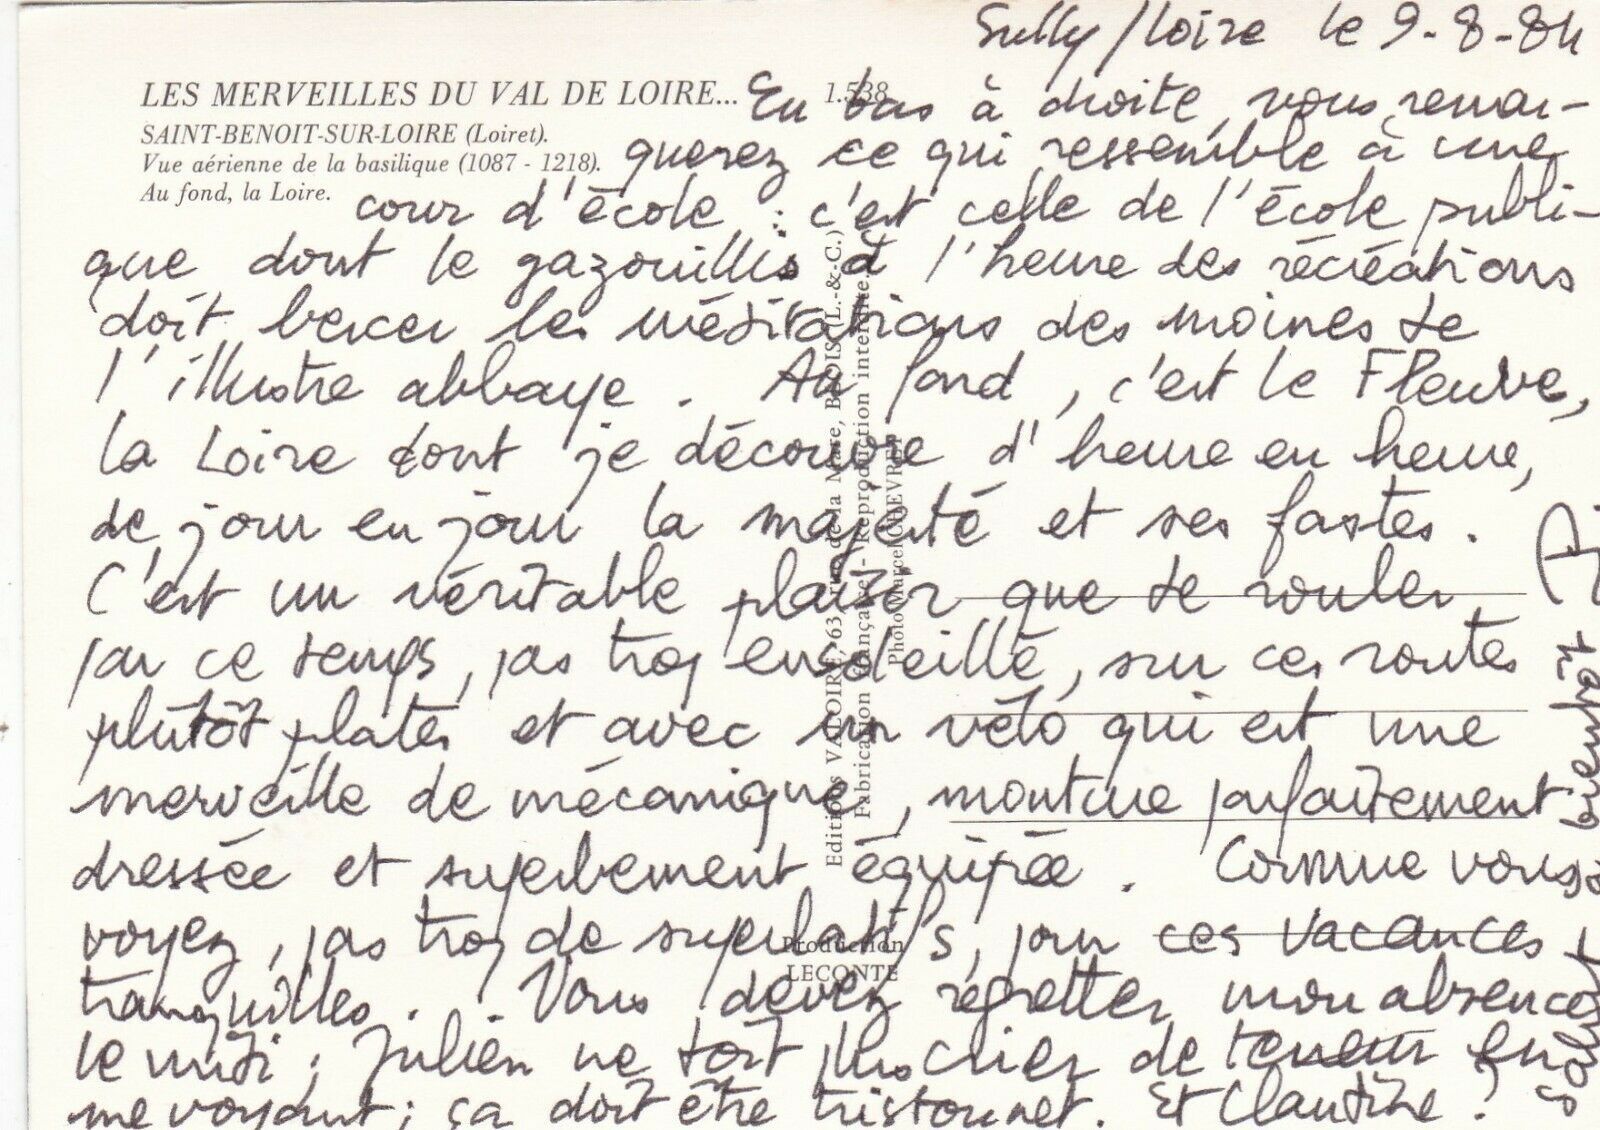 Sully/Loire le 9-8-84
LES MERVEILLES DU VAL DE LOIRE... 1.538
SAINT-BENOIT-SUR-LOIRE (Loiret).
Vue aérienne de la basilique (1087 - 1218).
Au fond, la Loire.
En bas à droite, vous remar-
querez ce qui ressemble à une
cour d'école : c'est celle de l'école publi-
que dont le gazouillis à l'heure des récréations
doit bercer les méditations des moines de
l'illustre abbaye. Au fond, c'est le Fleuve,
la Loire dont je découvre d'heure en heure,
de jour en jour la majesté et ses fastes.
C'est un véritable plaisir que de rouler
par ce temps, pas trop ensoleillé, sur ces routes
plutôt plates et avec un vélo qui est une
merveille de mécanique, monture parfaitement
dressée et superbement équipée. Comme vous
voyez, pas trop de superlatifs, pour ces vacances
tranquilles. . Vous devez regretter mon absence
le midi ; Julien ne doit plus crier de en
me voyant ; ça doit être tristounet. Et Claudine ?
Salut bientôt
Editions VALOIRE, 63, rue de la Mare, BLOIS (L.-&-C.)
Fabrication française - Reproduction interdite
Photo Marcel
Production
LECONTE